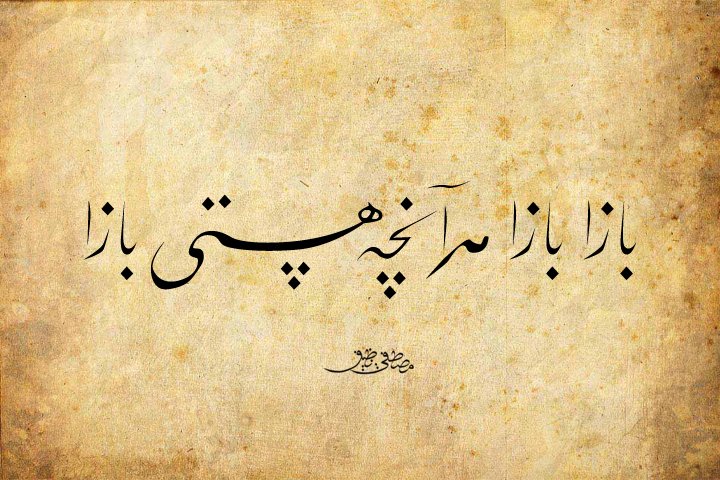 بازا بازا هرآنچه هستی بازا
مصطفی